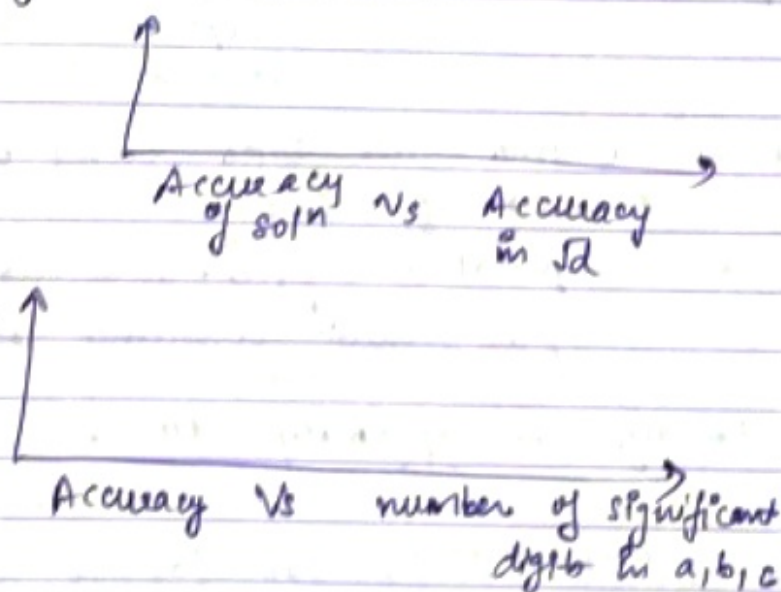 Accuracy Vs Accuracy
of solⁿ in √d
Accuracy Vs number of significant
digits in a, b, c